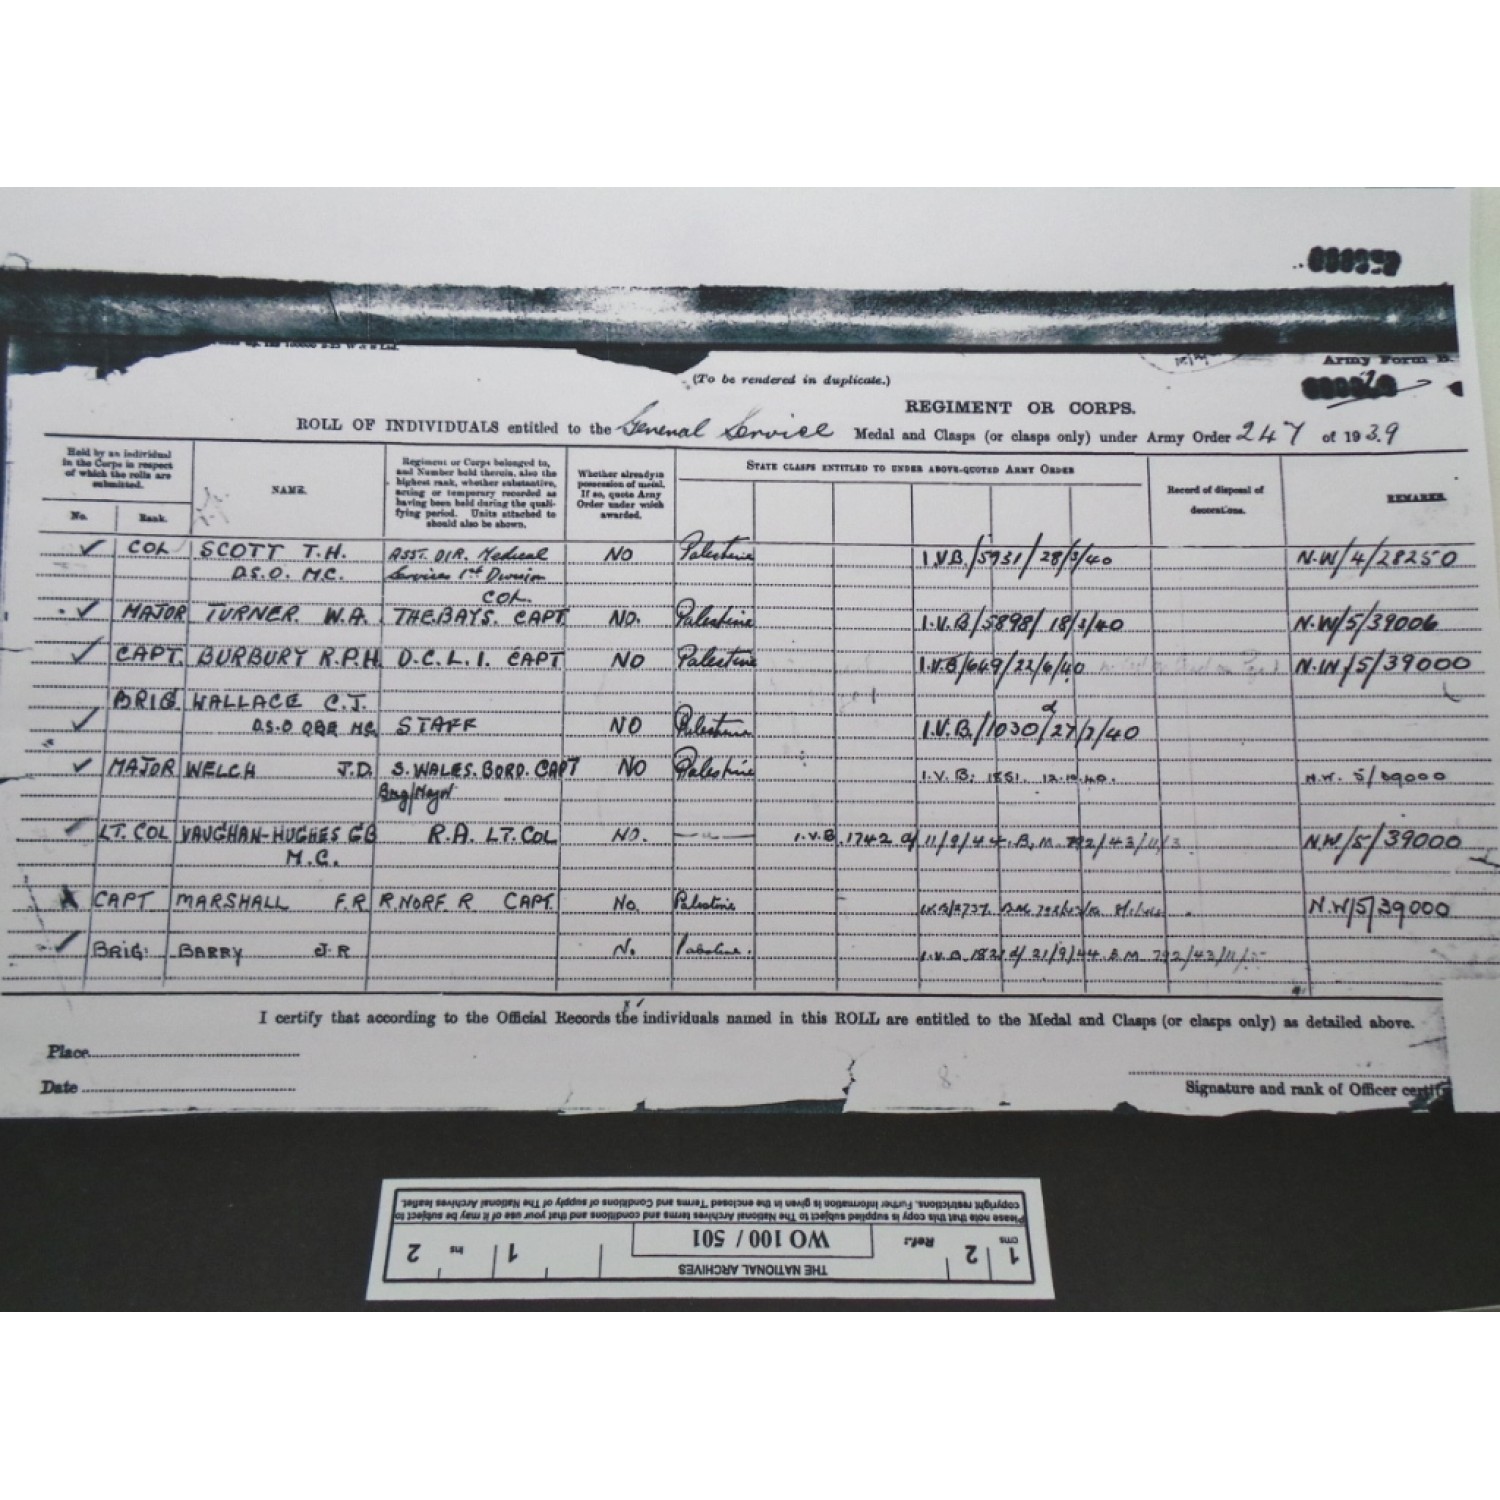 Army Form B.
(To be rendered in duplicate.)
REGIMENT OR CORPS.
ROLL OF INDIVIDUALS entitled to the General Service Medal and Clasps (or clasps only) under Army Order 247 of 1939
Held by an individual in the Corps in respect of which the rolls are submitted.
No. Rank.
NAME.
Regiment or Corps belonged to, and Number held therein, also the highest rank, whether substantive, acting or temporary recorded as having been held during the qualifying period. Units attached to should also be shown.
Whether already in possession of medal. If so, quote Army Order under which awarded.
STATE CLASPS ENTITLED TO UNDER ABOVE-QUOTED ARMY ORDER
Record of disposal of decorations.
REMARKS.
COL SCOTT T.H. ASST. DIR. Medical NO Palestine I.V.B./5931/28/3/40 N.W/4/28250
D.S.O. M.C. Services 1st Division
COL.
MAJOR TURNER. W.A. THE BAYS. CAPT NO. Palestine I.V.B/5898/18/3/40 N.W/5/39006
CAPT. BURBURY R.P.H. D.C.L.I. CAPT NO Palestine I.V.B/649/22/6/40 N.W/5/39000
BRIG WALLACE C.J.
D.S.O OBE MC. STAFF NO Palestine I.V.B./1030/27/7/40
MAJOR WELCH J.D. S. WALES. BORD. CAPT NO Palestine I.V.B. 1851. 12.10.40. N.W. 5/39000
Brig/Major
LT. COL VAUGHAN-HUGHES GB R.A. LT. COL NO. I.V.B. 1742 d/ 11/9/44. B.M. 792/43/11/3. N.W/5/39000
M.C.
CAPT MARSHALL F.R R. NORF. R CAPT. No. Palestine N.W/5/39000
BRIG. BARRY J.R No. Palestine. I.V.B. 1821 d/ 21/9/44 B.M. 792/43/11/
I certify that according to the Official Records the individuals named in this ROLL are entitled to the Medal and Clasps (or clasps only) as detailed above.
Place
Date
8.
Signature and rank of Officer certify
Please note that this copy is supplied subject to The National Archives terms and conditions and that your use of it may be subject to
copyright restrictions. Further information is given in the enclosed 'Terms and Conditions of supply of The National Archives' leaflet.
cms 1 2 Ref.: WO 100 / 501 1 ins 2
THE NATIONAL ARCHIVES